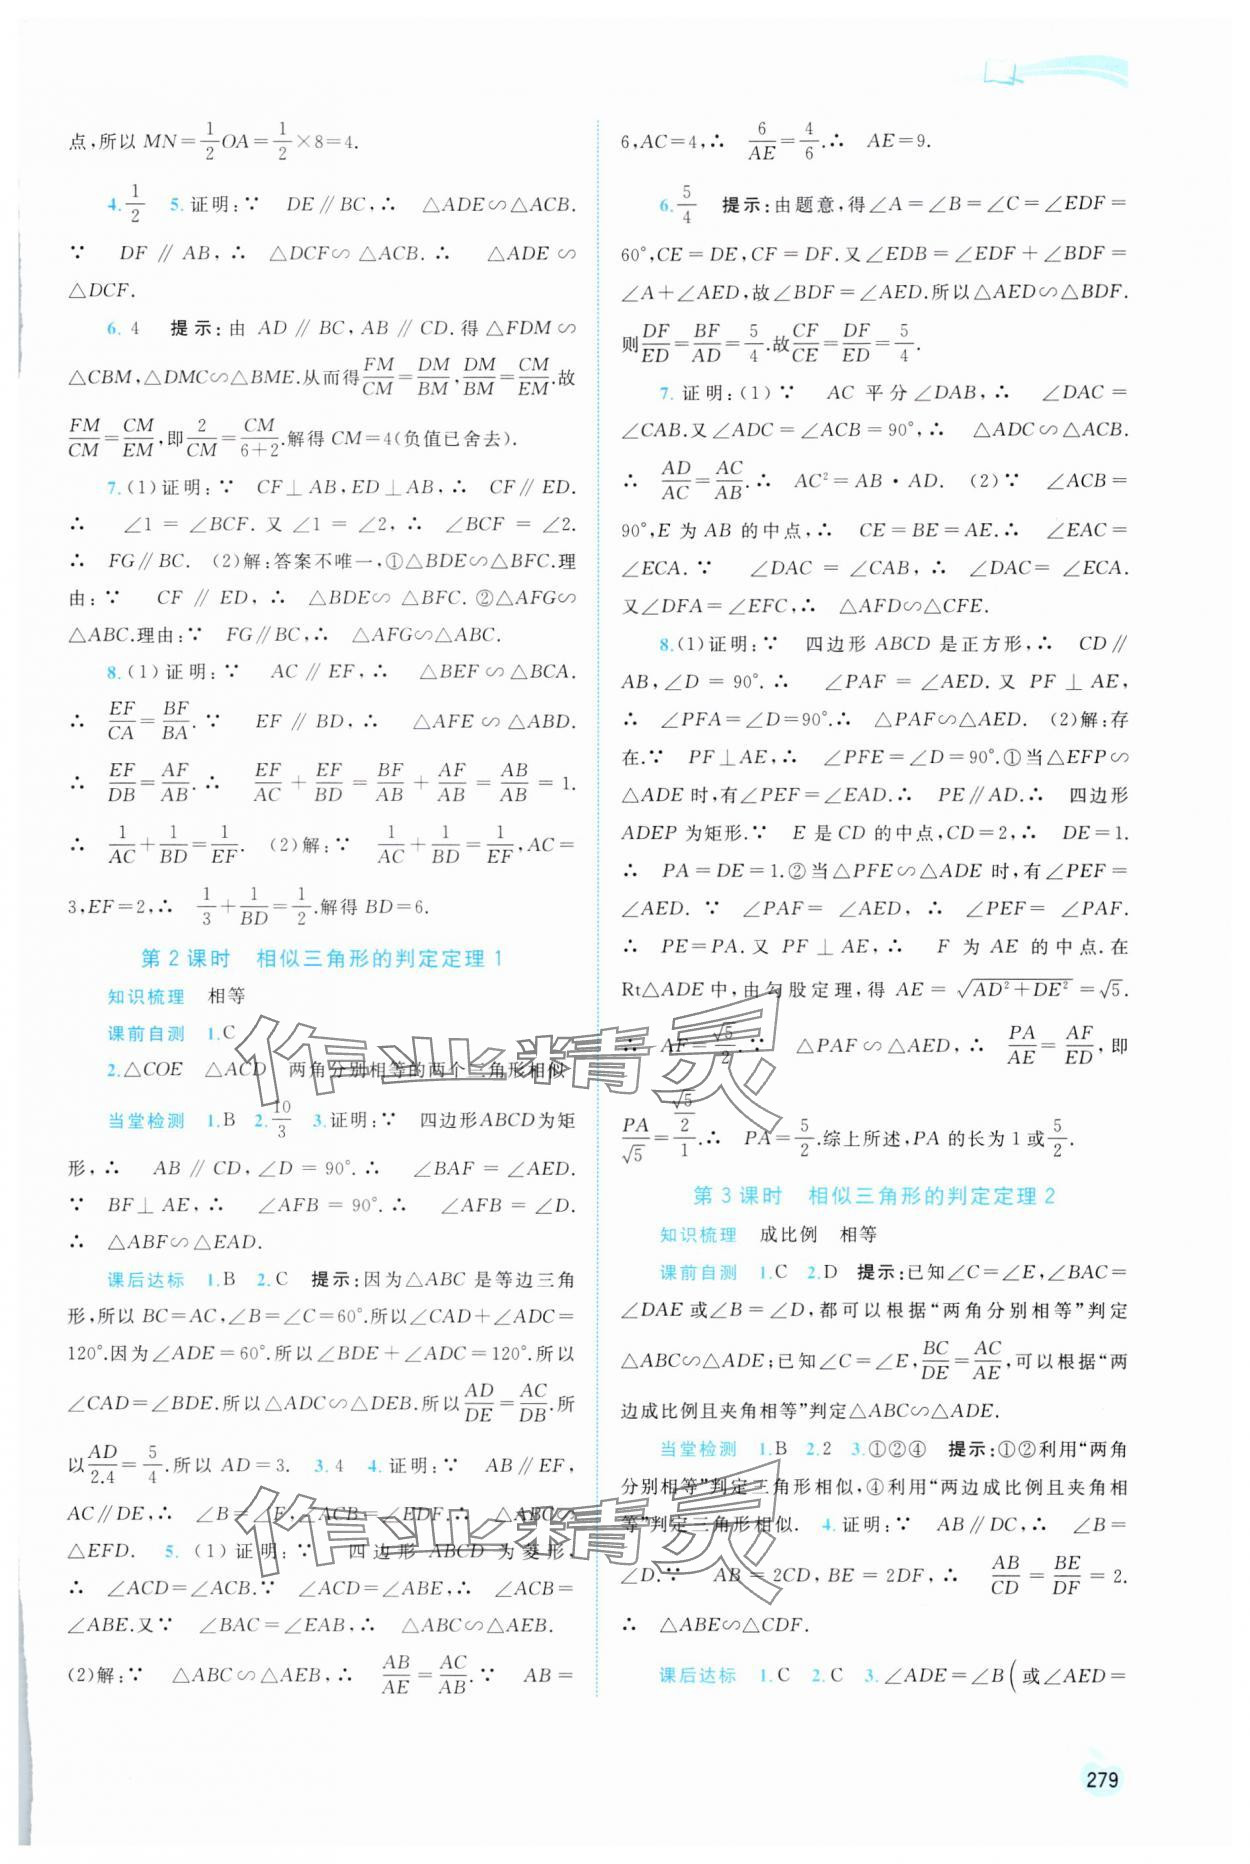 点,所以 MN=1/2 OA=1/2×8=4.
4. 1/2　5. 证明:∵ DE∥BC,∴ △ADE∽△ACB.
∵ DF∥AB,∴ △DCF∽△ACB.∴ △ADE∽
△DCF.
6. 4　提示:由 AD∥BC,AB∥CD.得△FDM∽
△CBM,△DMC∽△BME.从而得FM/CM=DM/BM,DM/BM=CM/EM.故
FM/CM=CM/EM,即2/CM=CM/(6+2).解得 CM=4(负值已舍去).
7. (1)证明:∵ CF⊥AB,ED⊥AB,∴ CF∥ED.
∴ ∠1=∠BCF.又∠1=∠2,∴ ∠BCF=∠2.
∴ FG∥BC. (2)解:答案不唯一,①△BDE∽△BFC.理
由:∵ CF∥ED,∴ △BDE∽△BFC.②△AFG∽
△ABC.理由:∵ FG∥BC,∴ △AFG∽△ABC.
8. (1)证明:∵ AC∥EF,∴ △BEF∽△BCA.
∴ EF/CA=BF/BA.∵ EF∥BD,∴ △AFE∽△ABD.
∴ EF/DB=AF/AB.∴ EF/AC+EF/BD=BF/AB+AF/AB=AB/AB=1.
∴ 1/AC+1/BD=1/EF. (2)解:∵ 1/AC+1/BD=1/EF,AC=
3,EF=2,∴ 1/3+1/BD=1/2.解得 BD=6.
第2课时　相似三角形的判定定理1
知识梳理　相等
课前自测　1. C
2. △COE　△ACD　两角分别相等的两个三角形相似
当堂检测　1. B　2. 10/3　3. 证明:∵ 四边形ABCD为矩
形,∴ AB∥CD,∠D=90°.∴ ∠BAF=∠AED.
∵ BF⊥AE,∴ ∠AFB=90°.∴ ∠AFB=∠D.
∴ △ABF∽△EAD.
课后达标　1. B　2. C　提示:因为△ABC是等边三角
形,所以 BC=AC,∠B=∠C=60°.所以∠CAD+∠ADC=
120°.因为∠ADE=60°.所以∠BDE+∠ADC=120°.所以
∠CAD=∠BDE.所以△ADC∽△DEB.所以AD/DE=AC/DB.所
以AD/2.4=5/4.所以 AD=3.　3. 4　4. 证明:∵ AB∥EF,
AC∥DE,∴ ∠B=∠F,∠ACB=∠E.∴ △ABC∽
△EFD.　5. (1)证明:∵ 四边形 ABCD 为菱形,
∴ ∠ACD=∠ACB.∵ ∠ACD=∠ABE,∴ ∠ACB=
∠ABE.又∵ ∠BAC=∠EAB,∴ △ABC∽△AEB.
(2)解:∵ △ABC∽△AEB,∴ AB/AE=AC/AB.∵ AB=
6,AC=4,∴ 6/AE=4/6.∴ AE=9.
6. 5/4　提示:由题意,得∠A=∠B=∠C=∠EDF=
60°,CE=DE,CF=DF.又∠EDB=∠EDF+∠BDF=
∠A+∠AED,故∠BDF=∠AED.所以△AED∽△BDF.
则DF/ED=BF/AD=5/4.故CF/CE=DF/ED=5/4.
7. 证明:(1)∵ AC平分∠DAB,∴ ∠DAC=
∠CAB.又∠ADC=∠ACB=90°,∴ △ADC∽△ACB.
∴ AD/AC=AC/AB.∴ AC²=AB·AD. (2)∵ ∠ACB=
90°,E为AB的中点,∴ CE=BE=AE.∴ ∠EAC=
∠ECA.∵ ∠DAC=∠CAB,∴ ∠DAC=∠ECA.
又∠DFA=∠EFC,∴ △AFD∽△CFE.
8. (1)证明:∵ 四边形ABCD是正方形,∴ CD∥
AB,∠D=90°.∴ ∠PAF=∠AED.又 PF⊥AE,
∴ ∠PFA=∠D=90°.∴ △PAF∽△AED. (2)解:存
在.∵ PF⊥AE,∴ ∠PFE=∠D=90°.①当△EFP∽
△ADE时,有∠PEF=∠EAD.∴ PE∥AD.∴ 四边形
ADEP为矩形.∵ E是CD的中点,CD=2,∴ DE=1.
∴ PA=DE=1.②当△PFE∽△ADE时,有∠PEF=
∠AED.∵ ∠PAF=∠AED,∴ ∠PEF=∠PAF.
∴ PE=PA.又 PF⊥AE,∴ F为AE的中点.在
Rt△ADE中,由勾股定理,得 AE=√(AD²+DE²)=√5.
∴ AF=√5/2.∵ △PAF∽△AED,∴ PA/AE=AF/ED,即
PA/√5=(√5/2)/1.∴ PA=5/2.综上所述,PA的长为1或5/2.
第3课时　相似三角形的判定定理2
知识梳理　成比例　相等
课前自测　1. C　2. D　提示:已知∠C=∠E,∠BAC=
∠DAE或∠B=∠D,都可以根据“两角分别相等”判定
△ABC∽△ADE;已知∠C=∠E,BC/DE=AC/AE,可以根据“两
边成比例且夹角相等”判定△ABC∽△ADE.
当堂检测　1. B　2. 2　3. ①②④　提示:①②利用“两角
分别相等”判定三角形相似,④利用“两边成比例且夹角相
等”判定三角形相似.　4. 证明:∵ AB∥DC,∴ ∠B=
∠D.∵ AB=2CD,BE=2DF,∴ AB/CD=BE/DF=2.
∴ △ABE∽△CDF.
课后达标　1. C　2. C　3. ∠ADE=∠B(或∠AED=
279
作业精灵
作业精灵